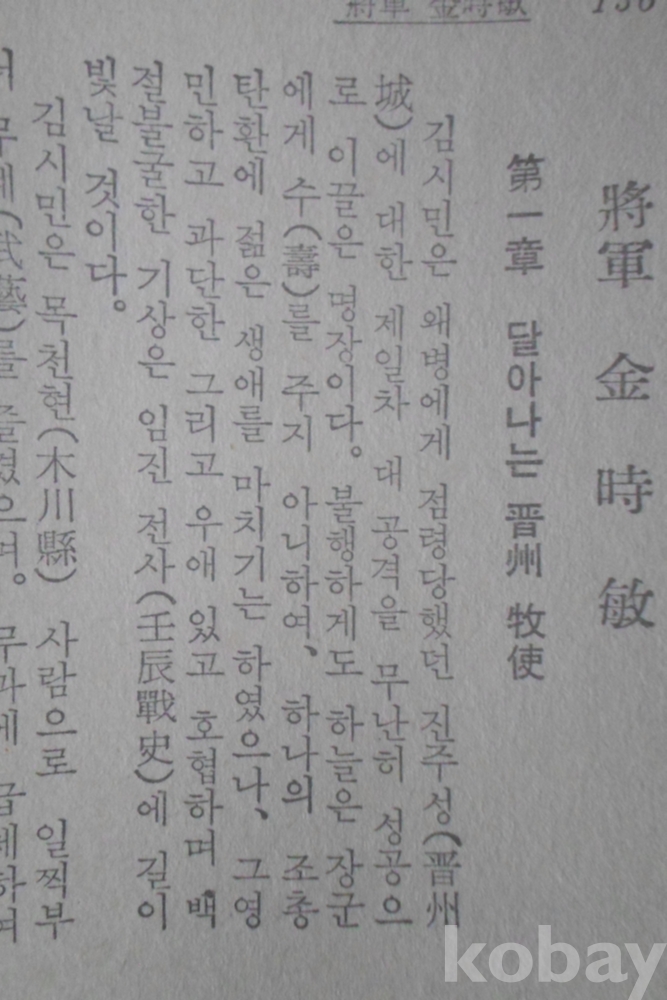 將軍 金時敏
將軍 金時敏
第一章 달아나는 晋州 牧使
김시민은 왜병에게 점령당했던 진주성(晋州
城)에 대한 제일차 대 공격을 무난히 성공으
로 이끌은 명장이다。불행하게도 하늘은 장군
에게 수(壽)를 주지 아니하여、하나의 조총
탄환에 젊은 생애를 마치기는 하였으나、그 영
민하고 과단한 그리고 우애 있고 호협하며 백
절불굴한 기상은 임진 전사(壬辰戰史)에 길이
빛날 것이다。
김시민은 목천현(木川縣) 사람으로 일찍부
터 무예(武藝)를 즐겼으며。무과에 급제하여
kobay